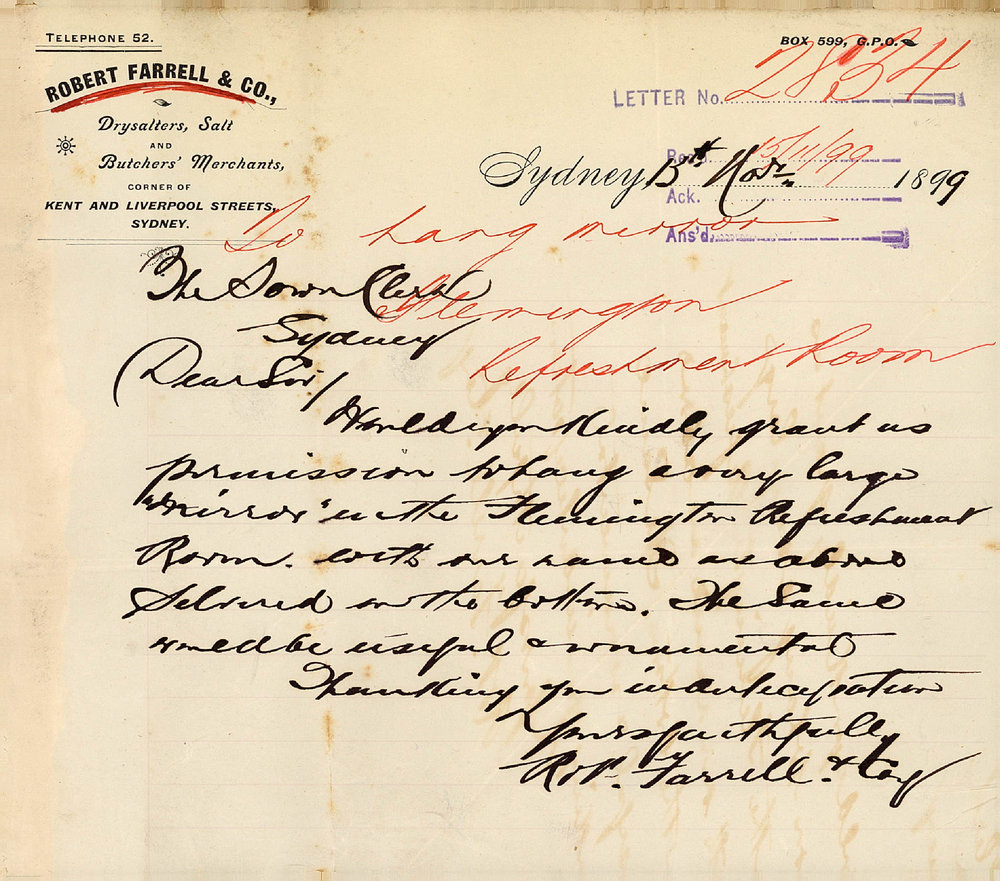 TELEPHONE 52.
BOX 599, G.P.O.
ROBERT FARRELL & CO.,
Drysalters, Salt
AND
Butchers' Merchants,
CORNER OF
KENT AND LIVERPOOL STREETS,
SYDNEY.
LETTER No. 2834
Rec'd. 15/11/99
Sydney, 15th Novr. 1899
Ack.
Ans'd.
To hang mirror
Flemington
Refreshment Room
The Town Clerk
Sydney
Dear Sir/
Would you Kindly grant us
permission to hang a very large
"Mirror" in the Flemington Refreshment
Room. with our name as above
Silvered on the bottom. The Same
would be useful & ornamental
Thanking you in anticipation
Yours faithfully
Robt. Farrell & Coy